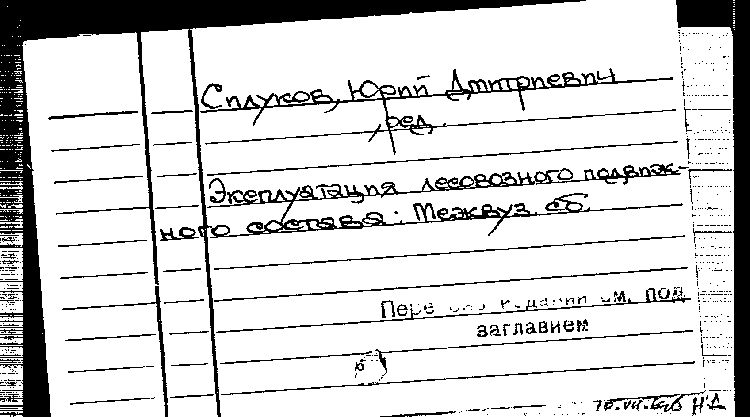 Силуков, Юрий Дмитриевич
ред.
Эксплуатация лесовозного подвиж-
ного состава: Межвуз. сб.
см. под
заглавием